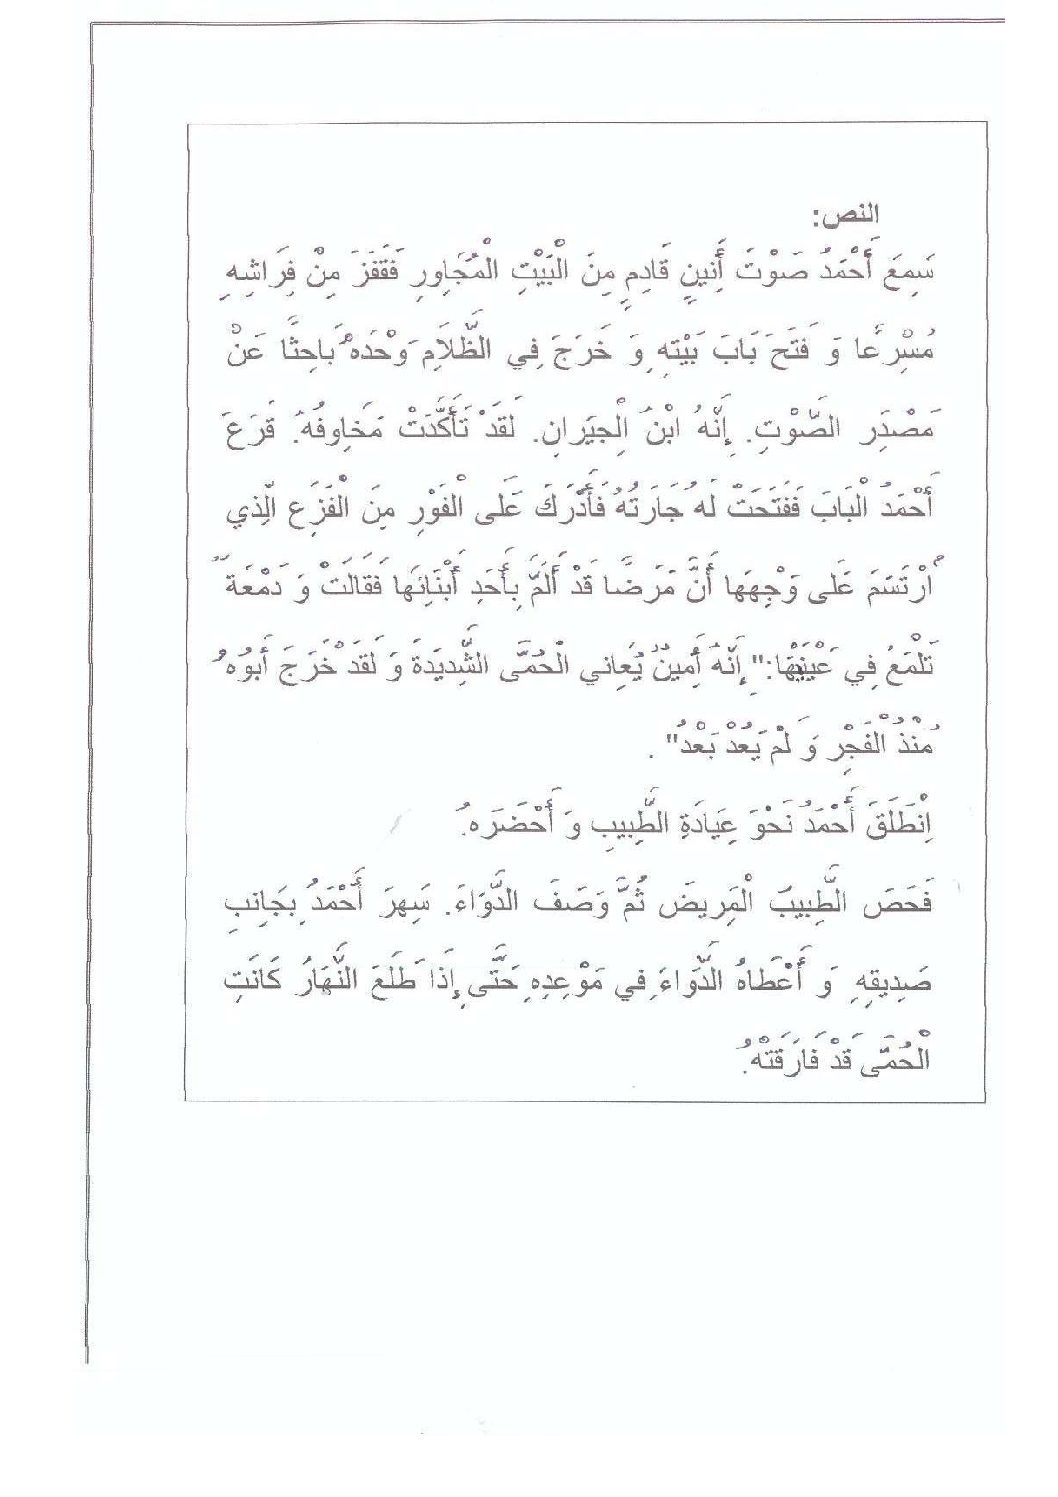 النص:
سَمِعَ أَحْمَدُ صَوْتَ أَنِينٍ قَادِمٍ مِنَ الْبَيْتِ الْمُجَاوِرِ فَقَفَزَ مِنْ فِرَاشِهِ
مُسْرِعًا وَ فَتَحَ بَابَ بَيْتِهِ وَ خَرَجَ فِي الظَّلَامِ وَحْدَهُ بَاحِثًا عَنْ
مَصْدَرِ الصَّوْتِ. إِنَّهُ ابْنُ الْجِيرَانِ. لَقَدْ تَأَكَّدَتْ مَخَاوِفُهُ. قَرَعَ
أَحْمَدُ الْبَابَ فَفَتَحَتْ لَهُ جَارَتُهُ فَأَدْرَكَ عَلَى الْفَوْرِ مِنَ الْفَزَعِ الَّذِي
ارْتَسَمَ عَلَى وَجْهِهَا أَنَّ مَرَضًا قَدْ أَلَمَّ بِأَحَدِ أَبْنَائِهَا فَقَالَتْ وَ دَمْعَةٌ
تَلْمَعُ فِي عَيْنَيْهَا:" إِنَّهُ أَمِينٌ يُعَانِي الْحُمَّى الشَّدِيدَةَ وَ لَقَدْ خَرَجَ أَبُوهُ
مُنْذُ الْفَجْرِ وَ لَمْ يَعُدْ بَعْدُ" .
اِنْطَلَقَ أَحْمَدُ نَحْوَ عِيَادَةِ الطَّبِيبِ وَ أَحْضَرَهُ.
فَحَصَ الطَّبِيبُ الْمَرِيضَ ثُمَّ وَصَفَ الدَّوَاءَ. سَهِرَ أَحْمَدُ بِجَانِبِ
صَدِيقِهِ وَ أَعْطَاهُ الدَّوَاءَ فِي مَوْعِدِهِ حَتَّى إِذَا طَلَعَ النَّهَارُ كَانَتِ
الْحُمَّى قَدْ فَارَقَتْهُ.